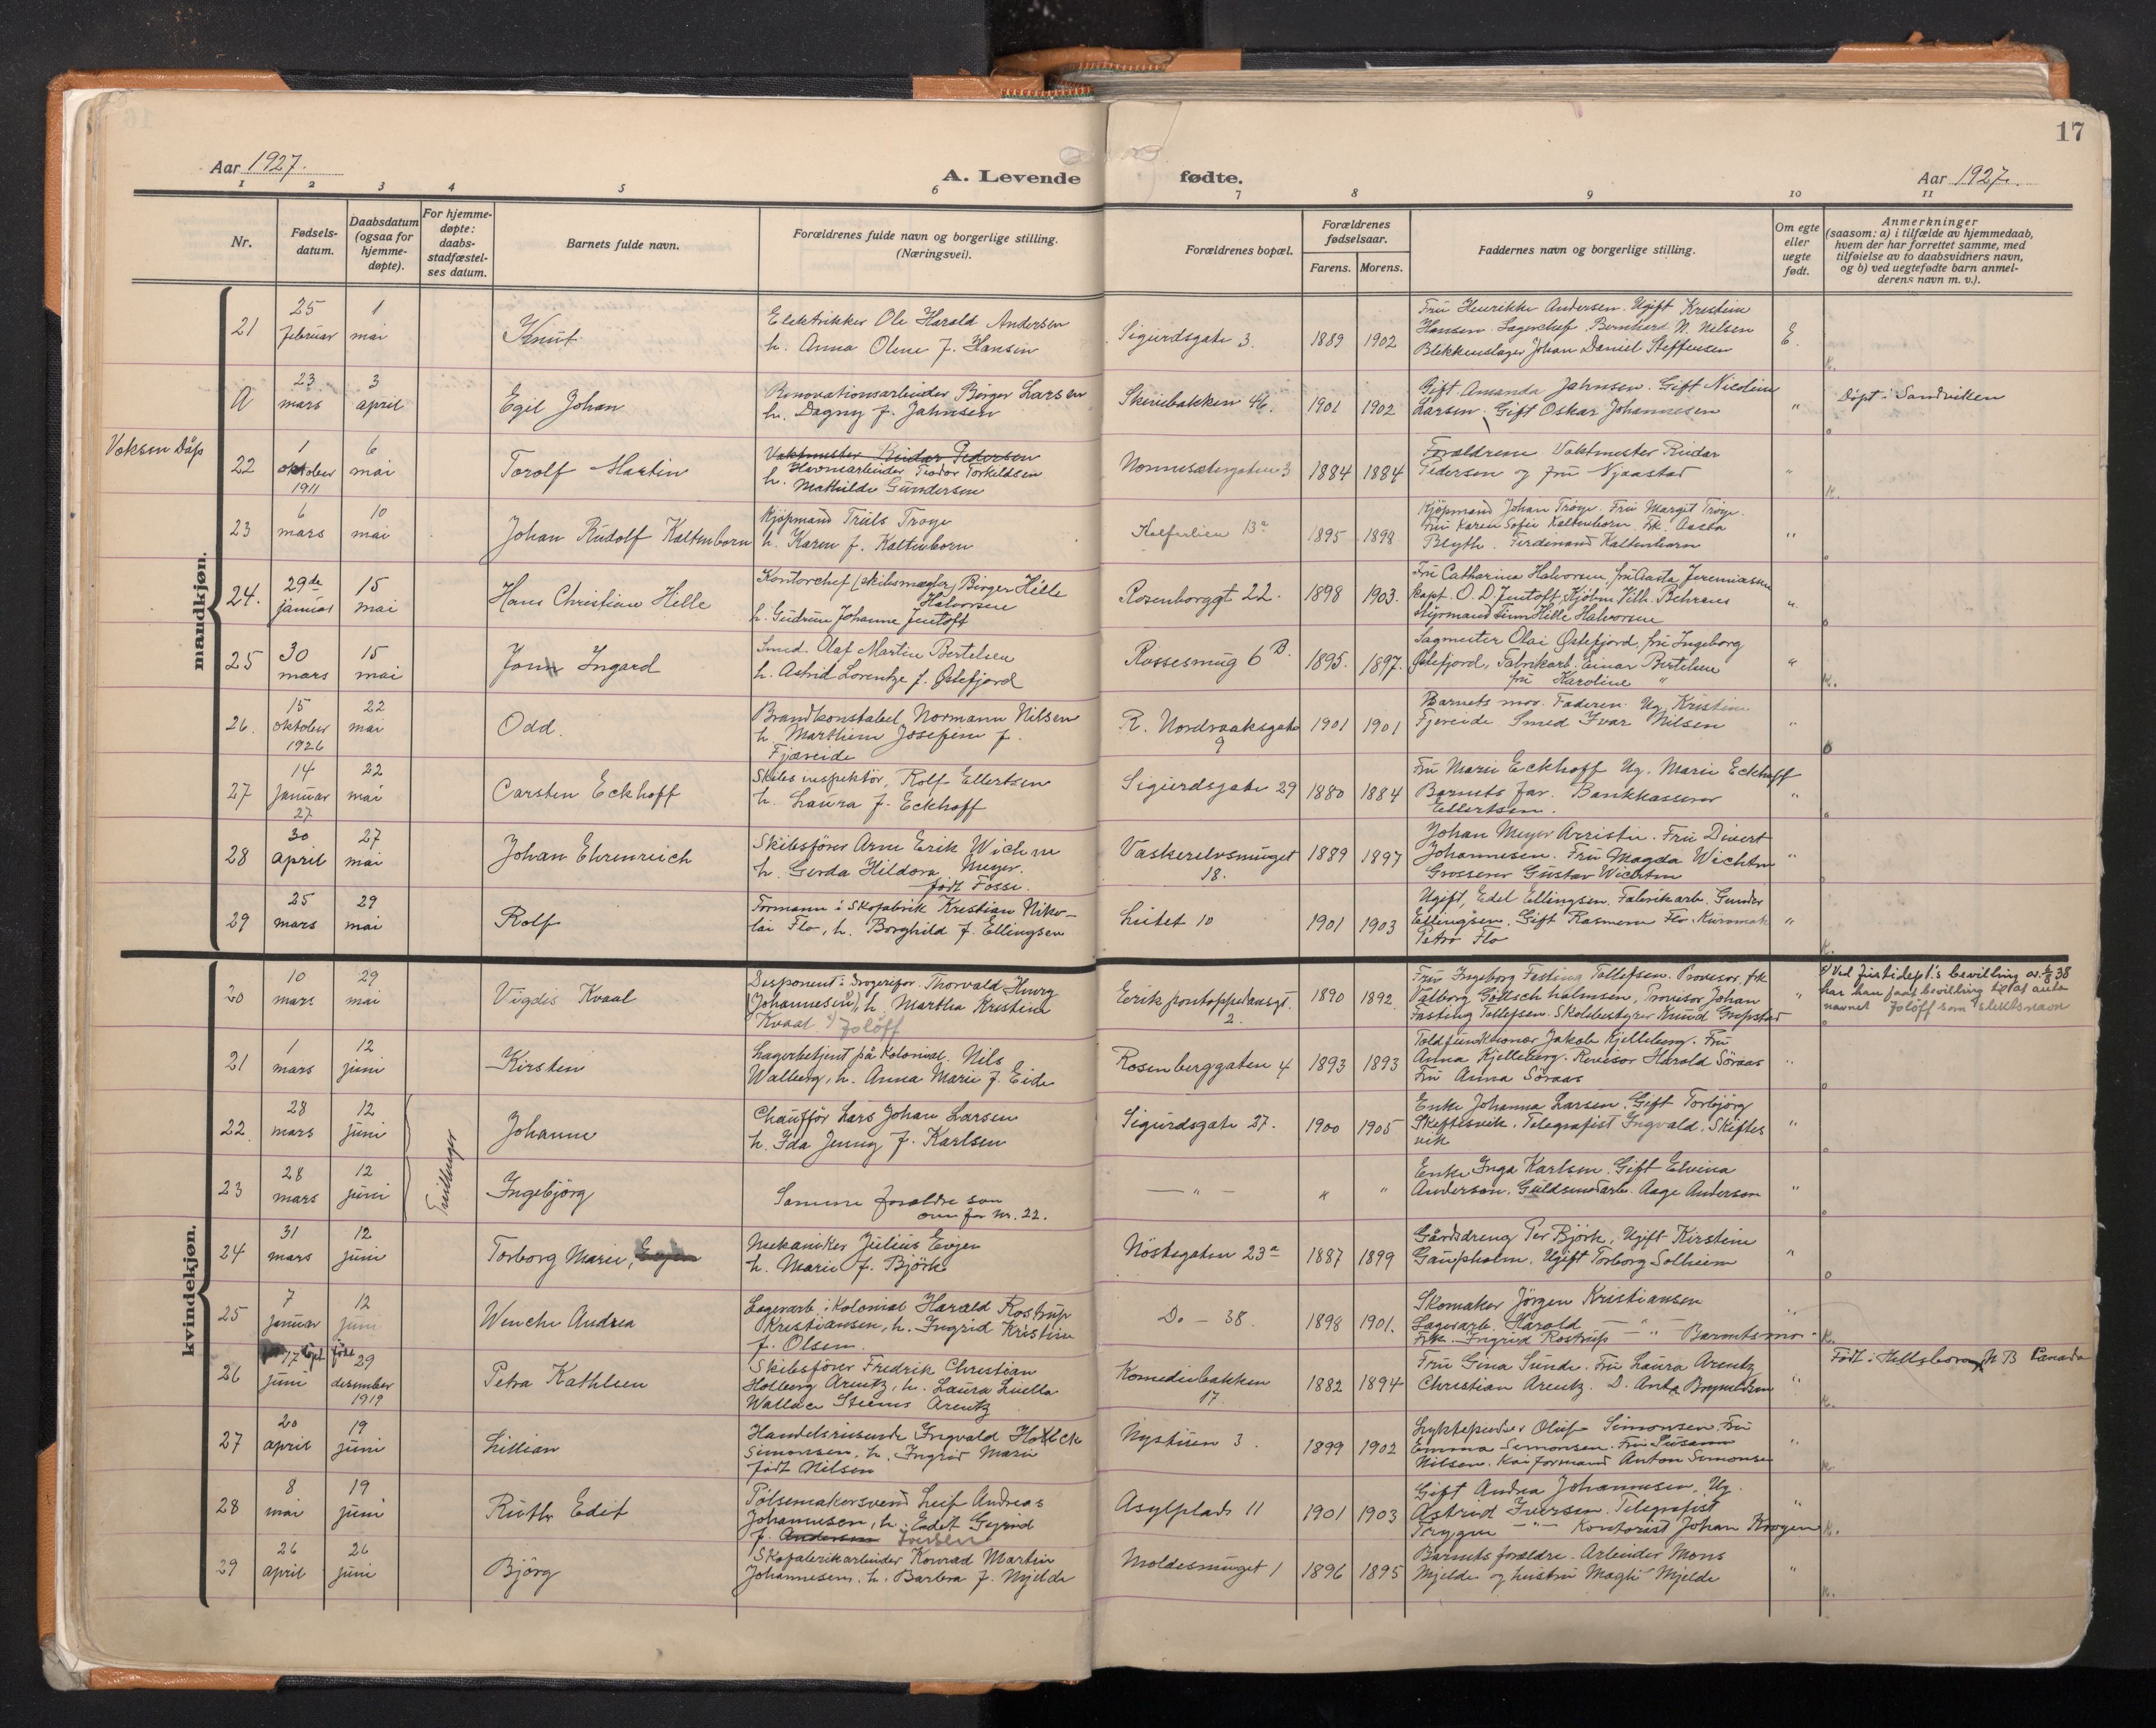 17
Aar 1927.
A. Levende fødte.
Aar 1927.
1 2 3 4 5 6 7 8 9 10 11
Nr.
Fødsels-
datum.
Daabsdatum
(ogsaa for
hjemme-
døpte).
For hjemme-
døpte:
daabs-
stadfæstel-
ses datum.
Barnets fulde navn.
Forældrenes fulde navn og borgerlige stilling.
(Næringsvei).
Forældrenes bopæl.
Forældrenes
fødselsaar.
Farens. Morens.
Faddernes navn og borgerlige stilling.
Om egte
eller
uegte
født.
Anmerkninger
(saasom: a) i tilfælde av hjemmedaab,
hvem der har forrettet samme, med
tilføielse av to daabsvidners navn,
og b) ved uegtefødte barn anmel-
derens navn m. v.).
mandkjøn.
21
25
februar
1
mai
Knut
Elektrikker Ole Harald Andersen
h. Anna Oline f. Hansen
Sigurdsgate 3.
1889 1902
Fru Henrikke Andersen. Ugift Kristine
Hansen. Lagerchef Bernhard N. Nilsen
Blikkenslager Johan Daniel Steffensen
E.
K.
A
23
mars
3
april
Egil Johan
Renovationsarbeider Birger Larsen
h. Dagny f. Jahnsen
Skivebakken 46.
1901 1902
Gift Amanda Jahnsen. Gift Nicoline
Larsen. Gift Oskar Johannesen
"
Døpt i Sandviken
o
Voksen Dåp
22
1
oktober
1911
6
mai
Torolf Martin
Vaktmester Reidar Pedersen
Havnearbeider Teodor Torkildsen
h. Mathilde Gundersen
Nonnesetergaten 3
1884 1884
Forældrene Vaktmester Reidar
Pedersen og fru Njaastad
"
K.
23
6
mars
10
mai
Johan Rudolf Kaltenborn
Kjøpmand Truls Trøye
h. Karen f. Kaltenborn
Kalfarlien 13a
1895 1898
Kjøpmand Johan Trøye. Fru Margit Trøye.
Fru Karen Sofie Kaltenborn. Frk. Aasta
Blyth. Ferdinand Kaltenborn
"
o
24.
29de
januar
15
mai
Hans Christian Hille
Kontorchef (skibsmægler) Birger Hille
Halvorsen
h. Gudrun Johanne Jentoft
Rosenborggt 22.
1898 1903.
Fru Catharina Halvorsen, fru Aasta Jeremiassen
kapt. O. D. Jentoft, Kjøbm Vilh. Behrens
styrmand Finn Hille Halvorsen
"
o
25
30
mars
15
mai
Jonn Ingard
Smed. Olaf Martin Bertelsen
h. Astrid Lorentze f. Østefjord
Rossesmug 6 B.
1895. 1897.
Sagmester Olai Østefjord, fru Ingeborg
Østefjord, Fabrikarb. Einar Bertelsen
fru Karoline "
"
K.
26.
15
oktober
1926
22
mai
Odd.
Brandkonstabel Normann Nilsen
h. Marthine Josefine f.
Fjæreide
R. Nordraaksgate
9
1901 1901
Barnets mor. Faderen. Ug. Kristine
Fjereide. Smed Ivar Nilsen
"
27
14
januar
27
22
mai
Carsten Eckhoff
Skibsinspektør, Rolf Ellertsen
h. Laura f. Eckhoff
Sigurdsgate 29
1880 1884
Fru Marie Eckhoff Ug. Marie Eckhoff
Barnets far. Bankkasserer
Ellertsen.
"
o
28
30
april
27
mai
Johan Ehrenreich
Skibsfører Arne Erik Wichne
h. Gerda Hildora Meyer.
født Fosse.
Vaskerelvsmuget
18.
1889 1897
Johan Meyer. Fru Divert
Johannesen. Fru Magda
Grosserer Gustav
"
29
25
mars
29
mai
Rolf
Formann i Skofabrik Kristian Niko-
lai Flo, h. Borghild f. Ellingsen
Luitet 10
1901 1903
Ugift, Edel Ellingsen. Fabrikarb. Gunder
Ellingsen. Gift Rasmine Flo.
Petra Flo
"
K.
kvindekjøn.
20
10
mars
29
mai
Vigdis Kvaal
Disponent i Drogerifor. Thorvald
(Johannesen), h. Martha Kristine
Kvaal Joløff
Erik pontoppidansgt.
2.
1890 1892.
Fru Ingeborg Fasting Tollefsen. Provisor, frk
Valborg Holmsen, Provisor Johan
Fasting Tollefsen. Skolebestyrer Knud
"
Ved Justisdept's bevilling av 38
har han faat bevilling til at anta
navnet Joløff som slektsnavn
o
21
1
mars
12
juni
Kirsten
Lagerbetjent på Kolonial. Nils
Walberg, h. Anna Marie f. Eide
Rosenberggaten 4
1893 1893
Toldfunktionær Jakob Kjelleberg. Fru
Anna Kjelleberg. Revisor Harald Søraas
Fru Anna Søraas
"
o
Tvillinger
22
28
mars
12
juni
Johanne
Chauffør Lars Johan Larsen
h. Ida Jenny f. Karlsen
Sigurdsgate 27.
1900 1905
Enke Johanna Larsen. Gift Torbjørg
Skiftesvik. Telegrafist Ingvald Skiftes
vik
"
o
23
28
mars
12
juni
Ingebjørg
Samme foreldre som
ovenfor nr. 22.
— " —
" "
Enke Inga Karlsen. Gift Elvina
Anderson. Guldsmedarb. Aage Anderson
"
o
24
31
mars
12
juni
Torborg Marie, Evjen
Mekaniker Julius Evjen
h. Marie f. Björk
Nöstegaten 23a
1887 1899
Gårdsdreng Per Björk, Ugift Kirstine
Gaupholm. Ugift Torborg Solheim
"
o
25
7
januar
12
juni
Wenche Andrea
Lagerarb. i Kolonial Harald Rostrup
Kristiansen, h. Ingrid Kristine
f. Olsen.
Do — 38.
1898 1901.
Skomaker Jörgen Kristiansen
Lagerarb. Harald — " —
Frk. Ingrid Rostrup — " — Barnets mor
"
K.
26
17
juni
29
desember
1919
Petra Kathleen
Skibsfører Fredrik Christian
Holberg Arentz, h. Laura Luella
Wallace Steeves Arentz
Komediebakken
17.
1882 1894
Fru Gina Sunde. Fru Laura Arentz
Christian Arentz. D. Anta Brynildsen
"
Født i Hillsboro N B Canada
K.
27
20
april
19
juni
Lillian
Handelsreisende Ingvald Holck
Simonsen, h. Ingrid Marie
født Nilsen
Nystuen 3.
1899 1902
Lyktepudser Oluf Simonsen. Fru
Emma Simonsen. Fru Susanne
Nilsen. Kaiformand Anton Simonsen
"
K.
28
8
mai
19
juni
Ruth Edit
Pølsemakersvend Leif Andreas
Johannesen, h. Edit Gyrid
f. Andersen Iversen
Asylplads 11
1901 1903
Gift Andrea Johannesen, Ug.
Astrid Iversen. Telegrafist
Trygve — " — Kontorist Johan Krogen
"
K.
29
26
april
26
juni
Björg
Skofabrikarbeider Konrad Martin
Johannesen. h. Barbra f. Mjelde
Moldesmuget 1
1896 1895
Barnets forældre. Arbeider Mons
Mjelde og hustru Magli Mjelde
"
K.